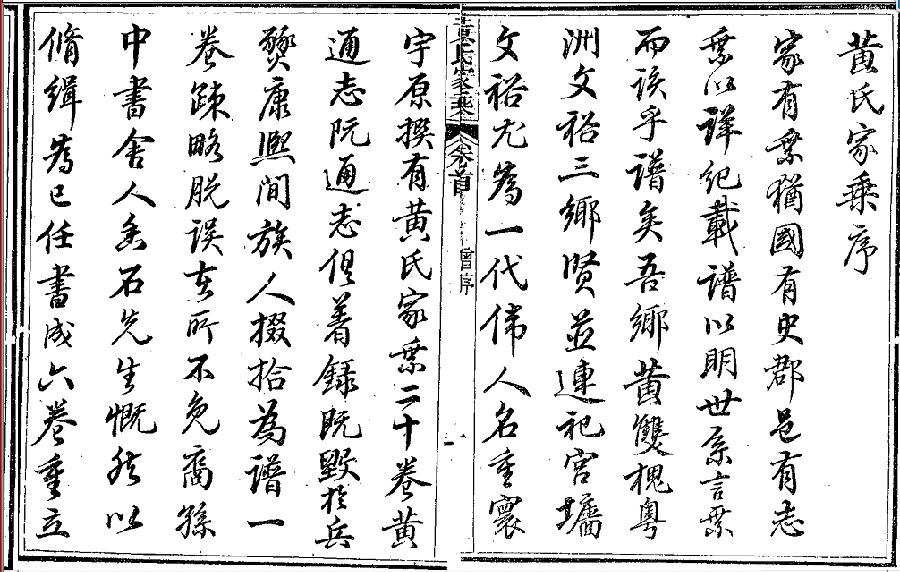 黃氏家乗序
家有乗猶國有史郡邑有志
乗以詳紀載譜以明世系言乗
而該乎譜矣吾鄉黃雙槐粵
洲文裕三鄉賢並連祀宮牆
文裕尤為一代偉人名重寰
黃氏家乗
卷首
曾序
一
宇原撰有黃氏家乗二十卷黃
通志阮通志俱著録既毀於兵
燹康熙間族人掇拾為譜一
卷疎略脫误在所不免裔孫
中書舍人香石先生慨然以
脩緝為已任書成六卷重立